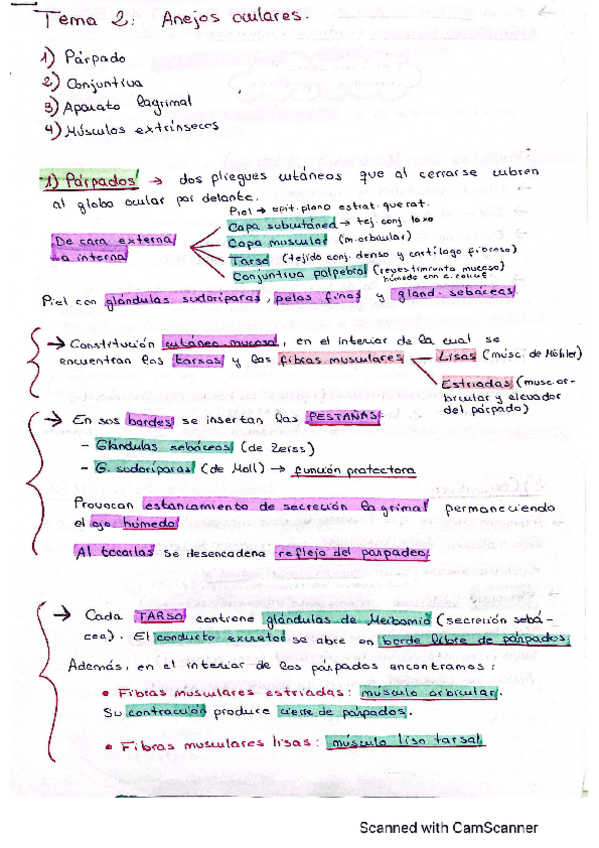 Tema 2: Anejos oculares.
1) Párpado
2) Conjuntiva
3) Aparato lagrimal
4) Músculos extrínsecos
1) Párpados → dos pliegues cutáneos que al cerrarse cubren
al globo ocular por delante.
De cara externa
a interna
Piel → epit. plano estrat. querat.
Capa subcutánea → tej. conj. laxo
Capa muscular (m. orbicular)
Tarso (tejido conj. denso y cartílago fibroso)
Conjuntiva palpebral (revestimiento mucoso
húmedo con a.
Piel con glándulas sudoríparas, pelos finos y gland. sebáceas.
→ Constitución cutáneo mucosa, en el interior de la cual se
encuentran los tarsos y las fibras musculares
Lisas (músc. de Möhler)
Estriadas (musc. or-
bicular y elevador
del párpado)
→ En sus bordes se insertan las PESTAÑAS:
- Glándulas sebáceas (de Zeiss)
- G. sudoríparas (de Moll) → función protectora
Provocan estancamiento de secreción lagrimal permaneciendo
el ojo húmedo
Al tocarlas se desencadena reflejo del parpadeo.
→ Cada TARSO contiene glándulas de Meibomio (secreción sebá-
cea). El conducto excretor se abre en borde libre de párpados.
Además, en el interior de los párpados encontramos:
• Fibras musculares estriadas: músculo orbicular.
Su contracción produce cierre de párpados.
• Fibras musculares lisas: músculo liso tarsal
Scanned with CamScanner